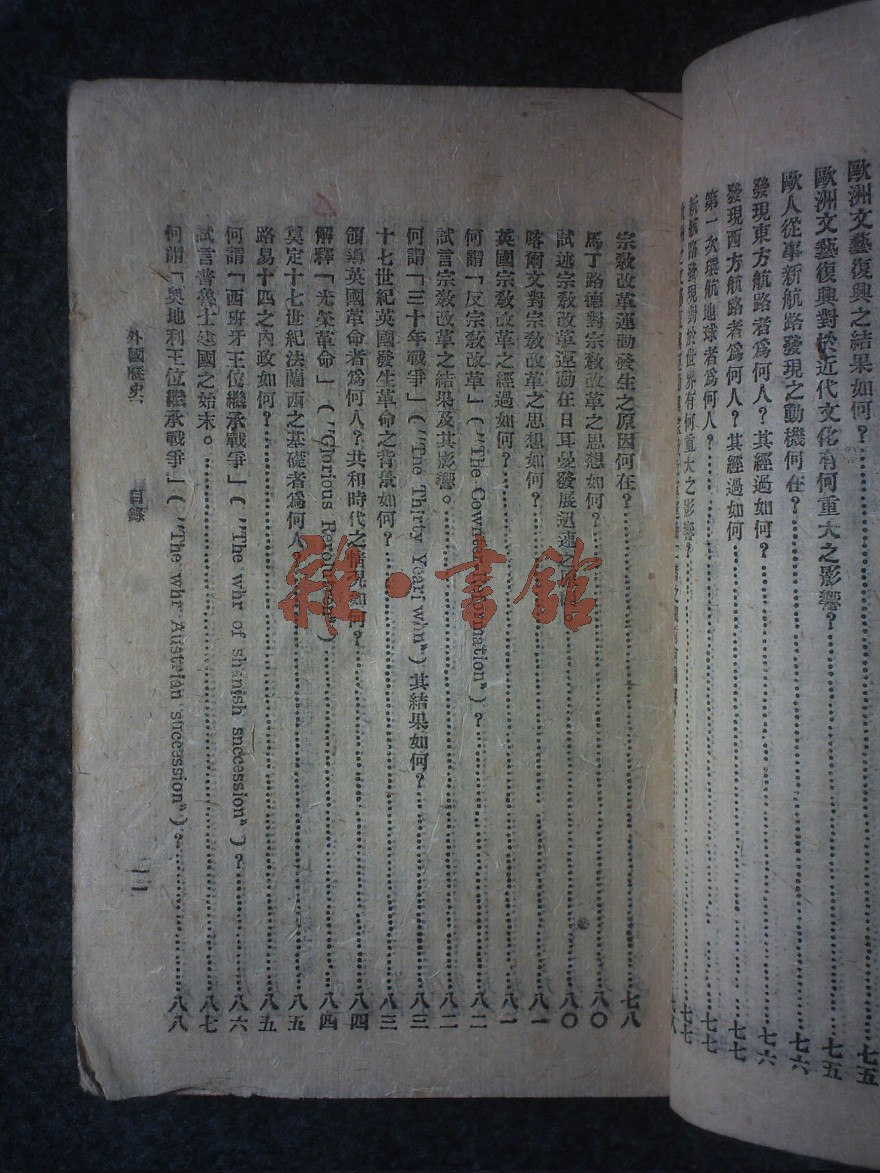 歐洲文藝復興之結果如何?……七五
歐洲文藝復興對於近代文化有何重大之影響?……七五
歐人從事新航路發現之動機何在?……七六
發現東方航路者爲何人?其經過如何?……七六
發現西方航路者爲何人?其經過如何……七七
第一次環航地球者爲何人?……七七
新航路發現對於世界有何重大之影響?……七七
宗敎改革運動發生之原因何在?……七八
馬丁路德對宗敎改革之思想如何?……八〇
試述宗敎改革運動在日耳曼發展迅速之……八〇
喀爾文對宗敎改革之思想如何?……八一
英國宗敎改革之經過如何?……八一
何謂「反宗敎改革」("The……")?……八二
試言宗敎改革之結果及其影響。……八二
何謂「三十年戰爭」("The Thirty Yearl whn")其結果如何?……八三
十七世紀英國發生革命之背景如何?……八三
領導英國革命者爲何人?共和時代之情況如何?……八四
解釋「光榮革命」("Glorious……")……八四
奠定十七世紀法蘭西之基礎者爲何人?……八五
路易十四之內政如何?……八五
何謂「西班牙王位繼承戰爭」("The whr of shanish snccession")?……八六
試言普魯士建國之始末。……八七
何謂「奧地利王位繼承戰爭」("The whr Austrian succession")?……八八
外國歷史 目錄 一二
雜·書館